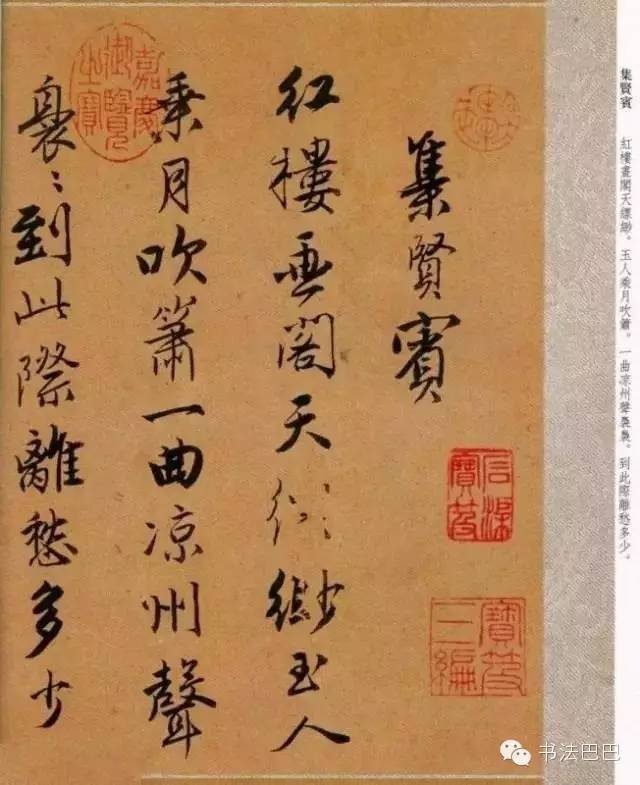 集賢賓　紅樓畫閣天縹緲。玉人乘月吹簫。一曲凉州聲裊裊。到此際離愁多少。
集賢賓
紅樓畫閣天縹緲玉人
乘月吹簫一曲凉州聲
裊〻到此際離愁多少
嘉慶御覽之寶
石渠寶笈
寶笈三編
书法巴巴